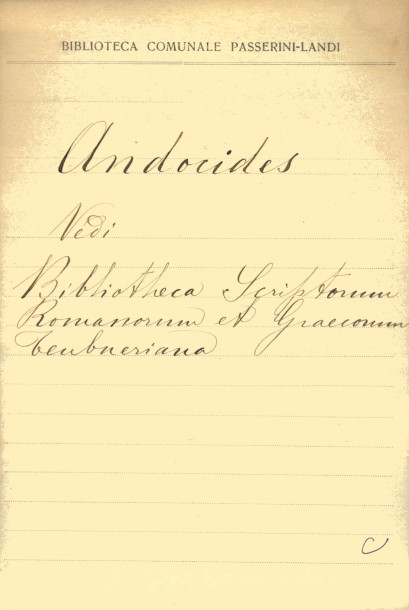 BIBLIOTECA COMUNALE PASSERINI-LANDI
Andocides
Vedi
Bibliotheca Scriptorum
Romanorum et Graecorum
teubneriana
C